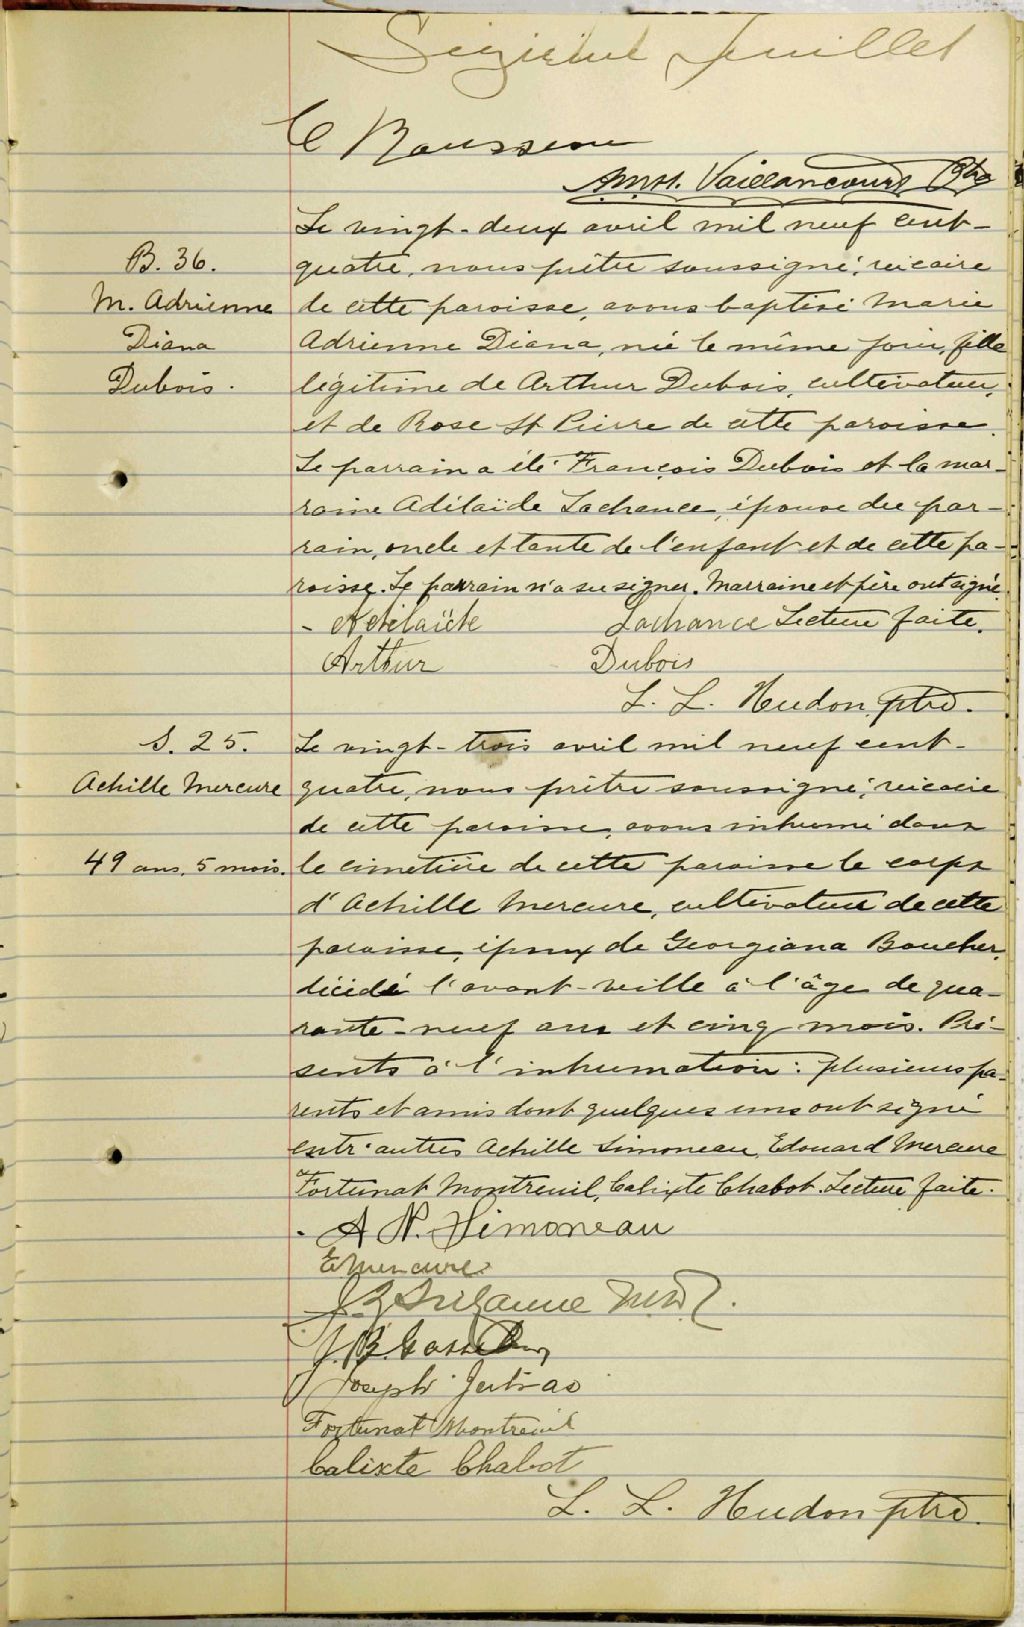 Seizième feuillet
C Rousseau
Amst. Vaillancourt Ptre
B. 36.
M. Adrienne
Diana
Dubois.
Le vingt-deux avril mil neuf cent-
quatre, nous prêtre soussigné, vicaire
de cette paroisse, avons baptisé Marie
Adrienne Diana, née le même jour, fille
légitime de Arthur Dubois, cultivateur,
et de Rose St Pierre de cette paroisse.
Le parrain a été François Dubois et la mar-
raine Adélaïde Lachance, épouse du par-
rain, oncle et tante de l'enfant et de cette pa-
roisse. Le parrain n'a su signer. Marraine et père ont signé.
- Adelaïde Lachance Lecture faite.
Arthur Dubois
L. L. Hudon, ptre.
S. 25.
Achille Mercure
49 ans, 5 mois.
Le vingt-trois avril mil neuf cent-
quatre, nous prêtre soussigné, vicaire
de cette paroisse, avons inhumé dans
le cimetière de cette paroisse le corps
d'Achille Mercure, cultivateur de cette
paroisse, époux de Georgiana Boucher,
décédé l'avant-veille à l'âge de qua-
rante-neuf ans et cinq mois. Pré-
sents à l'inhumation: plusieurs pa-
rents et amis dont quelques uns ont signé
entr'autres Achille Simoneau, Edouard Mercure
Fortunat Montreuil, Calixte Chabot. Lecture faite.
A N. Simoneau
E Mercure
J. B.
Joseph Jutras
Fortunat Montreuil
Calixte Chabot
L. L. Hudon ptre.